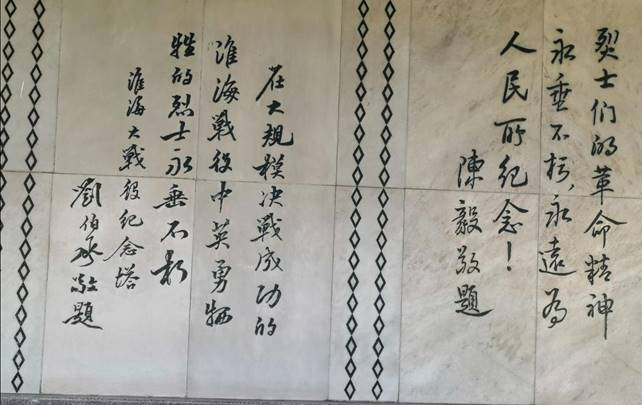 烈士们的革命精神
永垂不朽，永远为
人民所纪念！
陳毅敬題
在大規模决戰成功的
淮海戰役中英勇牺
牲的烈士永垂不朽
淮海大戰役纪念塔
劉伯承敬題